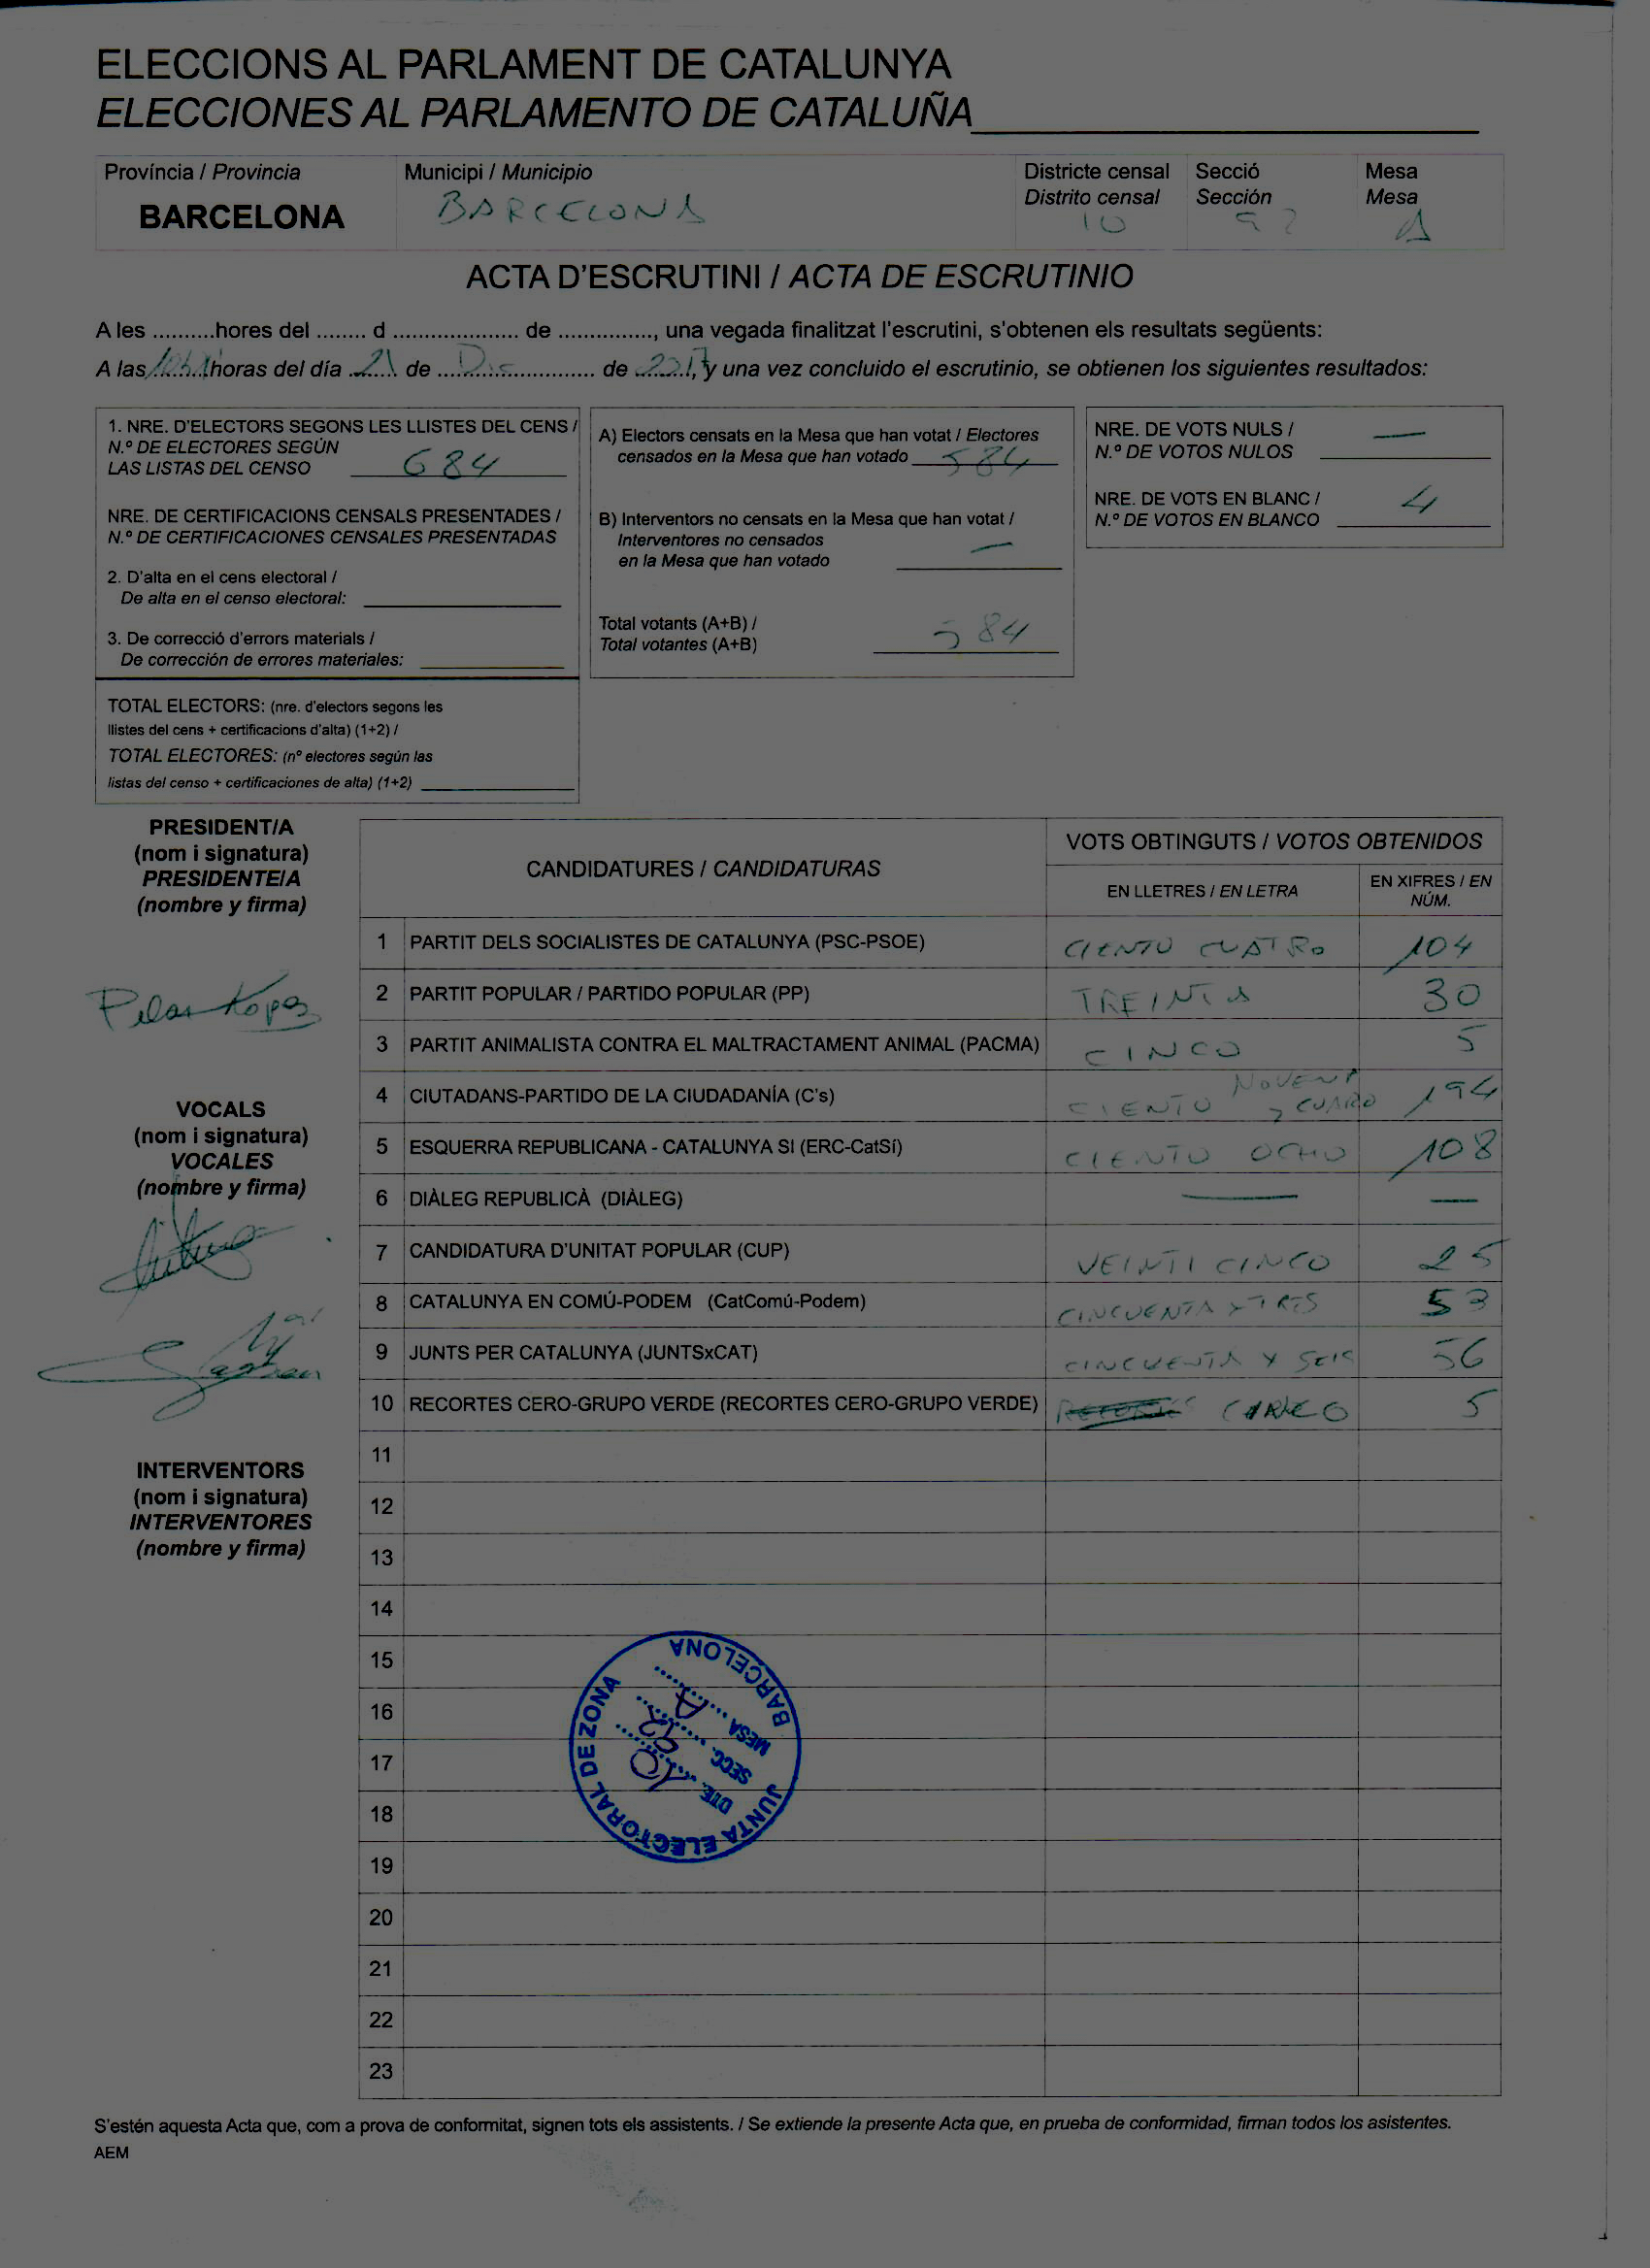 ELECCIONS AL PARLAMENT DE CATALUNYA
ELECCIONES AL PARLAMENTO DE CATALUÑA
Província / Provincia Municipi / Municipio Districte censal Secció Mesa
Distrito censal Sección Mesa
BARCELONA BARCELONA 10 92 A
ACTA D'ESCRUTINI / ACTA DE ESCRUTINIO
A les ..........hores del ........ d .................... de ..............., una vegada finalitzat l'escrutini, s'obtenen els resultats següents:
A las horas del día 21 de Dic de 2017, y una vez concluido el escrutinio, se obtienen los siguientes resultados:
1. NRE. D'ELECTORS SEGONS LES LLISTES DEL CENS /
N.º DE ELECTORES SEGÚN
LAS LISTAS DEL CENSO 684
NRE. DE CERTIFICACIONS CENSALS PRESENTADES /
N.º DE CERTIFICACIONES CENSALES PRESENTADAS
2. D'alta en el cens electoral /
De alta en el censo electoral:
3. De correcció d'errors materials /
De corrección de errores materiales:
TOTAL ELECTORS: (nre. d'electors segons les
llistes del cens + certificacions d'alta) (1+2) /
TOTAL ELECTORES: (nº electores según las
listas del censo + certificaciones de alta) (1+2)
A) Electors censats en la Mesa que han votat / Electores
censados en la Mesa que han votado 584
B) Interventors no censats en la Mesa que han votat /
Interventores no censados
en la Mesa que han votado —
Total votants (A+B) /
Total votantes (A+B) 584
NRE. DE VOTS NULS /
N.º DE VOTOS NULOS —
NRE. DE VOTS EN BLANC /
N.º DE VOTOS EN BLANCO 4
PRESIDENT/A
(nom i signatura)
PRESIDENTE/A
(nombre y firma)
Pilar Lopez
VOCALS
(nom i signatura)
VOCALES
(nombre y firma)
INTERVENTORS
(nom i signatura)
INTERVENTORES
(nombre y firma)
CANDIDATURES / CANDIDATURAS VOTS OBTINGUTS / VOTOS OBTENIDOS
EN LLETRES / EN LETRA EN XIFRES / EN
NÚM.
1 PARTIT DELS SOCIALISTES DE CATALUNYA (PSC-PSOE) CIENTO CUATRO 104
2 PARTIT POPULAR / PARTIDO POPULAR (PP) TREINTA 30
3 PARTIT ANIMALISTA CONTRA EL MALTRACTAMENT ANIMAL (PACMA) CINCO 5
4 CIUTADANS-PARTIDO DE LA CIUDADANÍA (C's) CIENTO NOVENTA y CUARO 194
5 ESQUERRA REPUBLICANA - CATALUNYA SI (ERC-CatSí) CIENTO OCHO 108
6 DIÀLEG REPUBLICÀ (DIÀLEG) — —
7 CANDIDATURA D'UNITAT POPULAR (CUP) VEINTI CINCO 25
8 CATALUNYA EN COMÚ-PODEM (CatComú-Podem) CINCUENTA Y TRES 53
9 JUNTS PER CATALUNYA (JUNTSxCAT) CINCUENTA Y SEIS 56
10 RECORTES CERO-GRUPO VERDE (RECORTES CERO-GRUPO VERDE) CINCO 5
11
12
13
14
15
16
17
18
19
20
21
22
23
JUNTA ELECTORAL DE ZONA BARCELONA
DTE. 10
SECC. 92
MESA A
S'estén aquesta Acta que, com a prova de conformitat, signen tots els assistents. / Se extiende la presente Acta que, en prueba de conformidad, firman todos los asistentes.
AEM